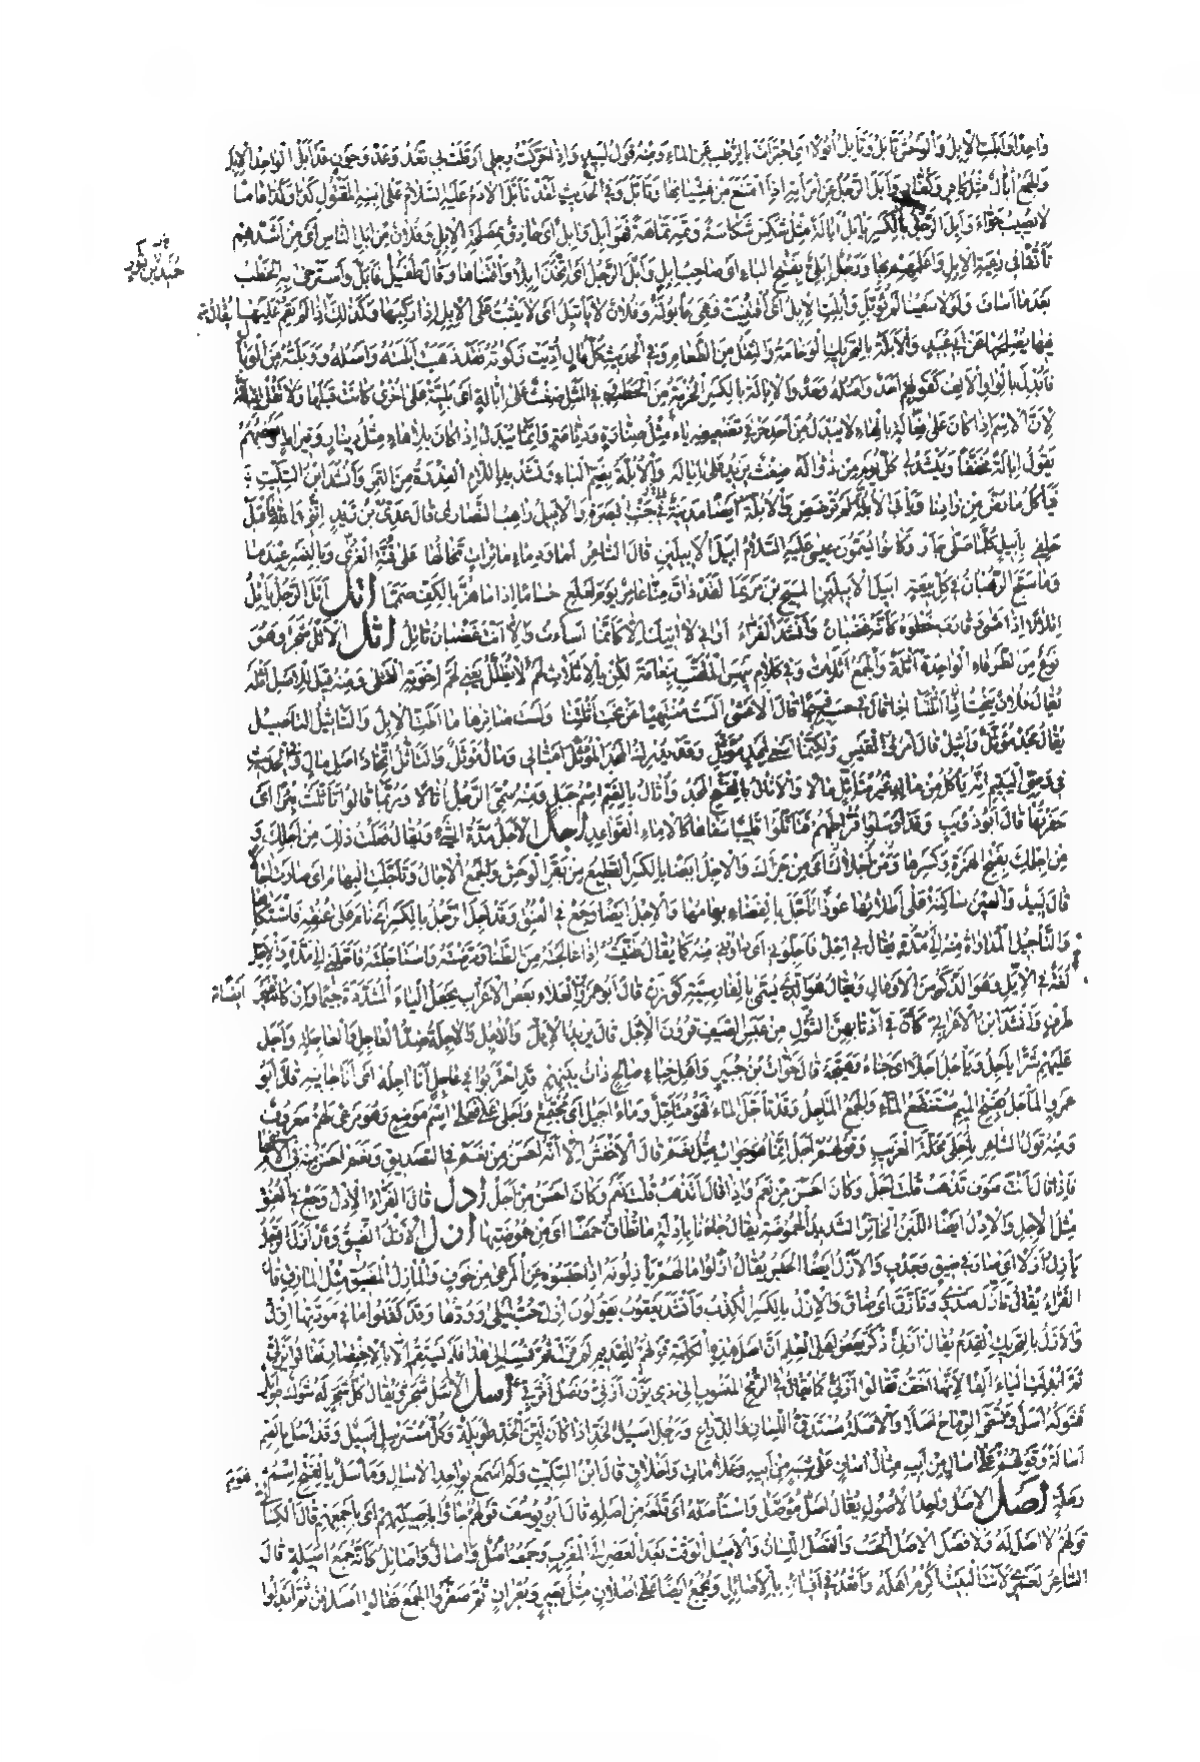 واحدا وابلت الابل والوحش تأبل وتأبل ابولا اى اجتزأت بالرطب عن الماء ومنه قول لبيد واذا حركت رجلى ارقلت بى تعدو عدو جون قد ابل الواحد الابل
والجمع ابال مثل كافر وكفار وابل الرجل عن امرأته اذا امتنع من غشيانها وتأبل وفى الحديث لقد تأبل ادم عليه السلام على ابنه المقتول كذا وكذا عاما
لا يصيب حواء وابل الرجل بالكسر يأبل ابالة مثل شكس شكاسة وتمه تماهة فهو ابل وابل اى حاذق بمصلحة الابل وفلان من ابل الناس اى من اشدهم
تأنقا فى رعية الابل واعلمهم بها ورجل ابلى بفتح الباء اى صاحب ابل وابل الرجل اى اتخذ ابلا واقتناها وقال طفيل فابل واسترخى به الخطب
بعد ما اساف ولولا سعينا لم يؤبل وابلت الابل اى اقتنيت فهى مأبولة وفلان لا يأتبل اى لا يثبت على الابل اذا ركبها وكذلك اذا لم يقم عليها
فيما يصلحها عن ابى عبيد والابلة بالتحريك الوخامة والثقل من الطعام وفى الحديث كل مال اديت زكوته فقد ذهبت ابلته واصله وبلته من الوبال
فابدل بالواو الالف كقولهم احد واصله وحد والابالة بالكسر الحزمة من الحطب وفى المثل ضغث على ابالة اى بلية على اخرى كانت قبلها ولا تقل ايبالة
لان الاسم اذا كان على فعالة بالهاء لا يبدل من احد حرفى تضعيفه ياء مثل صنارة ودنامة وانما يبدل اذا كان بلا هاء مثل دينار وقيراط وبعضهم
يقول ابالة مخففا وينشد لى كل يوم من ذؤاله ضغث يزيد على اباله والابلة بضم الباء وتشديد اللام الفدرة من التمر وانشد ابن السكيت
فيأكل ما رض من زادنا ويأبى الابلة لم ترضض والابلة ايضا مدينة الى جنب البصرة والابيل راهب النصارى قال عدى بن زيد اننى والله فاقبل
حلفى بابيل كلما صلى جار وكانوا يسمون عيسى عليه السلام ابيل الابيلين قال الشاعر اما ودماء مائرات تخالها على قنة العزى وبالنسر عندما
وما سبح الرهبان فى كل بيعة ابيل الابيلين المسيح بن مريما لقد ذاق منا عامر يوم لعلع حساما اذا ما هز بالكف صمما اتل اتل الرجل يأتل
اتلانا اذا مشى وقارب خطوه كانه غضبان وانشد الفراء ارانى لا اتيك الا كانما اسأت والا انت غضبان تأتل اثل الاثل شجر وهو
نوع من الطرفاء الواحدة اثلة والجمع اثلات وفى كلام بيهس الملقب بنعامة لكن بالاثلاث لحم لا يظلل يعنى لحم اخوته القتلى ومنه قيل للاصل اثلة
يقال فلان ينحت اثلتنا اذا قال فى حسبه قبيحا قال الاعشى الست منتهيا عن نحت اثلتنا ولست ضائرها ما اطت الابل والتأثيل التأصيل
يقال مجد مؤثل واثيل قال امرؤ القيس ولكنما اسعى لمجد مؤثل وقد يدرك المجد المؤثل امثالى ومال مؤثل والتأثل اتخاذ اصل مال وفى الحديث
فى وصى اليتيم انه يأكل من ماله غير متأثل مالا والاثال بالفتح المجد واثال بالضم اسم جبل ومنه سمى الرجل اثالا وربما قالوا تأثلت بئرا اى
حفرتها قال ابو ذؤيب وقد ارسلوا فراطهم فتأثلوا قليبا سفاها كالاماء القواعد اجل الاجل مدة الشىء ويقال فعلت ذلك من اجلك و
من اجلك بفتح الهمزة وكسرها ومن اجلاك اى من جراك والاجل ايضا بالكسر القطيع من بقر الوحش والجمع الاجال وتأجلت البهائم اى صارت اجالا
قال لبيد والعين ساكنة على اطلائها عوذا تأجل بالفضاء بهامها والاجل ايضا وجع فى العنق وقد اجل الرجل بالكسر اى نام على عنقه فاشتكاها
والتأجيل المداواة منه
لغة فى الايل وهو الذكر من الاوعال ويقال هو الذى يسمى بالفارسية كوزن قال ابو عمرو بن العلاء بعض الاعراب يجعل الياء المشددة جيما وان كانت
طرف وانشد ابن الاعرابى كأن فى اذنابهن الشول من عبس الصيف قرون الاجل قال يريد الايل والآجل والآجلة ضد العاجل والعاجلة واجل
عليهم شرا يأجل ويأجل اجلا اى جناه وهيجه قال خوات بن جبير واهل خباء صالح ذات بينهم قد احتربوا فى عاجل انا اجله اى انا جانيه قال ابو
عمرو المأجل بفتح الجيم مستنقع الماء والجمع المآجل وقد تأجل الماء فهو متأجل وماء اجيل اى مجتمع واجلى على فعلى اسم موضع وهو مرعى لهم معروف
ومنه قول الشاعر باجلى محلة الغريب وقولهم اجل انما هو جواب مثل نعم قال الاخفش الا انه احسن من نعم فى التصديق ونعم احسن منه فى الاستفهام
فاذا قال انت سوف تذهب قلت اجل وكان احسن من نعم واذا قال اتذهب قلت نعم وكان احسن من اجل ادل قال الفراء الادل وجع فى العنق
مثل الاجل والادل ايضا اللبن الخاثر الشديد الحموضة يقال جاءنا بادلة ما تطاق حمضا اى من حموضتها ازل الازل الضيق وقد ازل الرجل
يأزل ازلا اى صار فى ضيق وجدب والازل ايضا الحبس يقال ازلوا مالهم يأزلونه اذا حبسوه عن المرعى من خوف والمأزل المضيق مثل المأزق قال
الفراء يقال تأزل صدرى وتأزق اى ضاق والازل بالكسر الكذب وانشد يعقوب يقولون ازل حب ليلى وودها وقد كذبوا ما فى مودتها ازل
والازل بالتحريك القدم يقال ازلى ذكر بعض اهل العلم ان اصل هذه الكلمة قولهم للقديم لم يزل ثم نسب الى هذا فلم يستقم الا بالاختصار فقالوا يزلى
ثم ابدلت الياء الفا لانها اخف فقالوا ازلى كما قالوا فى الرمح المنسوب الى ذى يزن ازنى ونصل اثربى اسل الاسل شجر ويقال كل شجر له شوك طويل
فشوكه اسل وتسمى الرماح اسلا والاسلة مستدق اللسان والذراع ورجل اسيل الخد اذا كان لين الخد طويله وكل مسترسل اسيل وقد اسل بالضم
اسالة وقولهم هو على اسال من ابيه مثال اسان على شبه من ابيه وعلامات واخلاق قال ابن السكيت ولم اسمع بواحد الاسال ومأسل بالفتح اسم
رملة اصل الاصل واحد الاصول يقال اصل مؤصل واستأصله اى قلعه من اصله قال ابو يوسف قولهم جاؤا باصيلتهم اى باجمعهم قال الكسائى
قولهم لا اصل له ولا فصل الاصل الحسب والفصل اللسان والاصيل الوقت بعد العصر الى المغرب وجمعه اصل واصال واصائل كانه جمع اصيلة قال
الشاعر لعمرى لانت البيت اكرم اهله واقعد فى افيائه بالاصائل ويجمع ايضا على اصلان مثل بعير وبعران ثم صغروا الجمع فقالوا اصيلان ثم ابدلوا